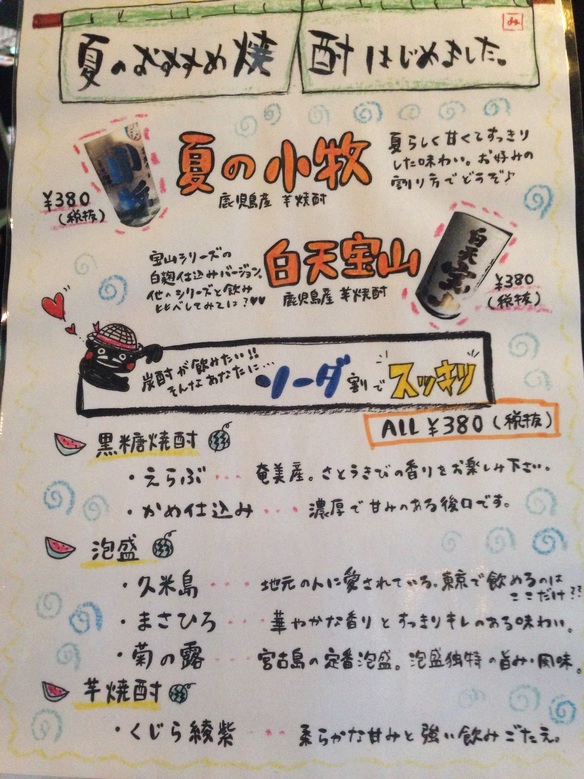 夏のおすすめ焼酎はじめました。
夏の小牧
鹿児島産 芋焼酎
夏らしく甘くてすっきり
した味わい。お好みの
割り方でどうぞ♪
¥380
(税抜)
宝山シリーズの
白麹仕込みバージョン。
他のシリーズと飲み
比べしてみては?♥♥
白天宝山
鹿児島産 芋焼酎
白天宝山
¥380
(税抜)
炭酎が飲みたい!!
そんなあなたに…
ソーダ割でスッキリ
ALL ¥380(税抜)
黒糖焼酎
・えらぶ… 奄美産。さとうきびの香りをお楽しみ下さい。
・かめ仕込み… 濃厚で甘みのある後口です。
泡盛
・久米島… 地元の人に愛されている。東京で飲めるのは
ここだけ??
・まさひろ… 華やかな香りとすっきりキレのある味わい。
・菊の露… 宮古島の定番泡盛。泡盛独特の旨み・風味。
芋焼酎
・くじら綾紫… 柔らかな甘みと強い飲みごたえ。